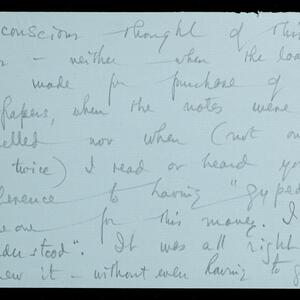 conscious thought of this
- neither when the loa
made for purchase of
papers, when the notes were
elled nor when (not on
twice) I read or heard yo
ference to having "gyped
one for this money. I
derstood". It was all right
new it - without even having to g